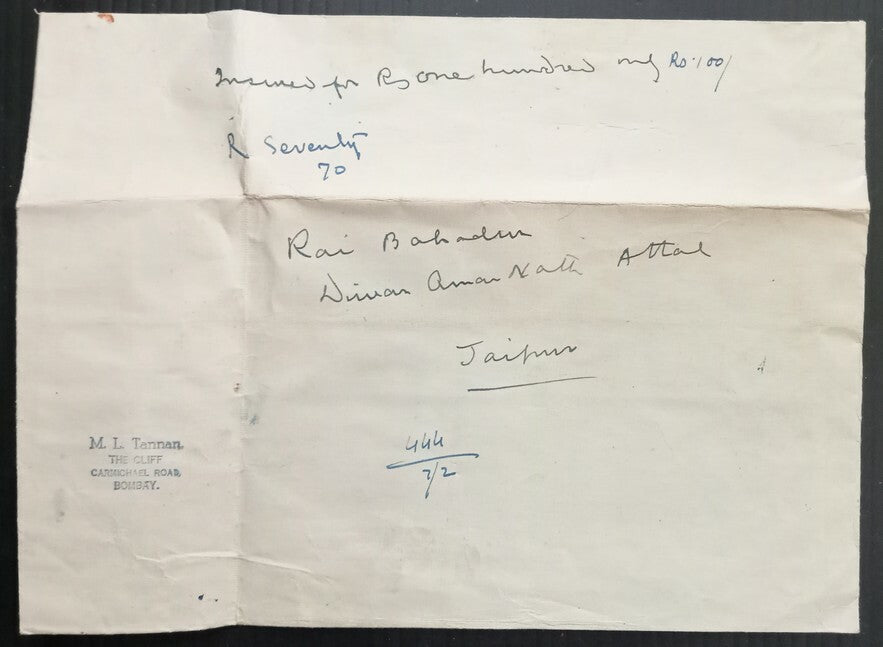 Insured for Rs one hundred only Rs. 100/
R Seventy
70
Rai Bahadur
Diwan Amar Nath Attal
Jaipur
M. L. Tannan,
THE CLIFF
CARMICHAEL ROAD,
BOMBAY.
444
2/2